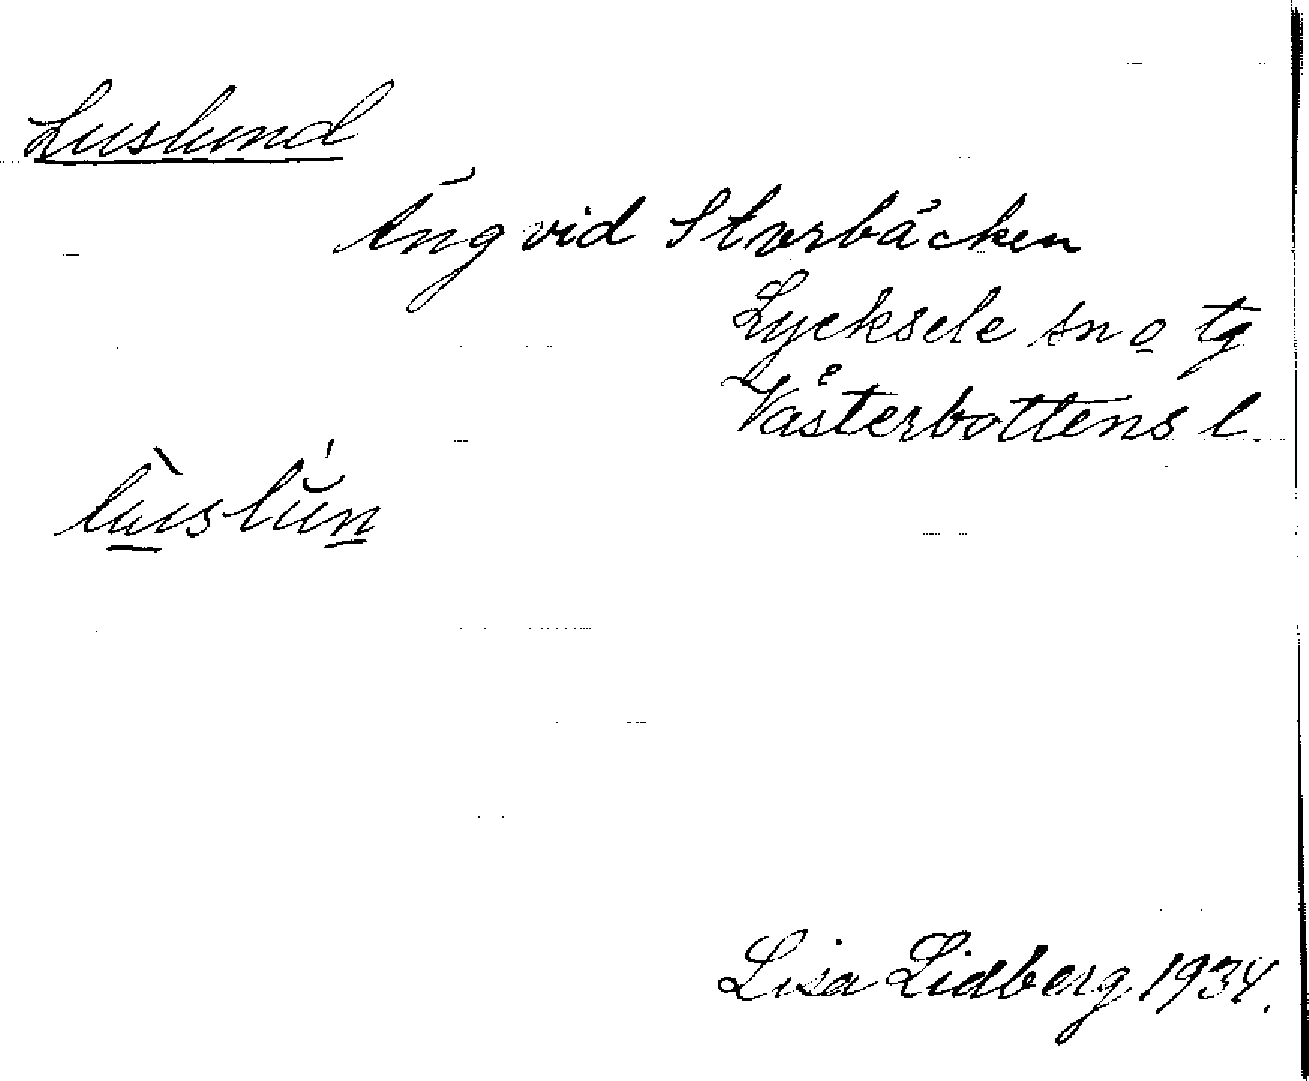 Luslund
Äng vid Storbäcken
Lycksele sn o tg
Västerbottens l.
lùuslún
Lisa Lidberg 1934.